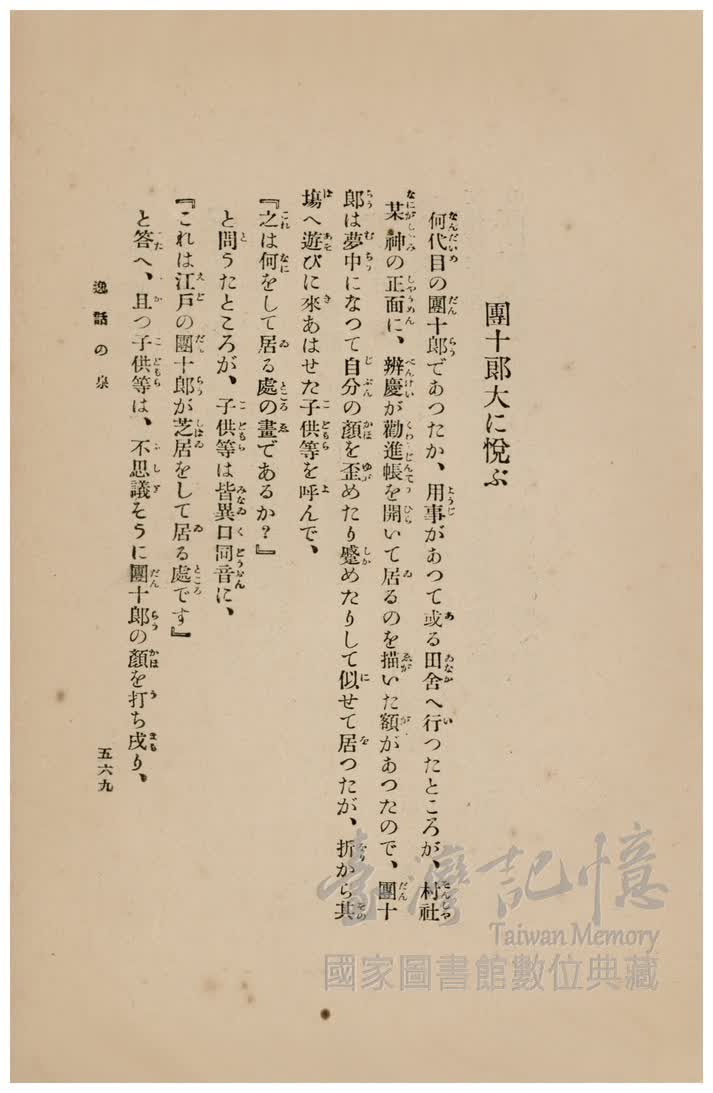 團十郎大に悅ぶ
何代目の團十郎であつたか、用事があつて或る田舍へ行つたところが、村社
某神の正面に、辨慶が勸進帳を開いて居るのを描いた額があつたので、團十
郎は夢中になつて自分の顏を歪めたり蹙めたりして似せて居つたが、折から其
場へ遊びに來あはせた子供等を呼んで、
『之は何をして居る處の畫であるか?』
と問うたところが、子供等は皆異口同音に、
『これは江戸の團十郎が芝居をして居る處です』
と答へ、且つ子供等は、不思議そうに團十郎の顏を打ち戍り、
逸話の泉
五六九
臺灣記憶
Taiwan Memory
國家圖書館數位典藏